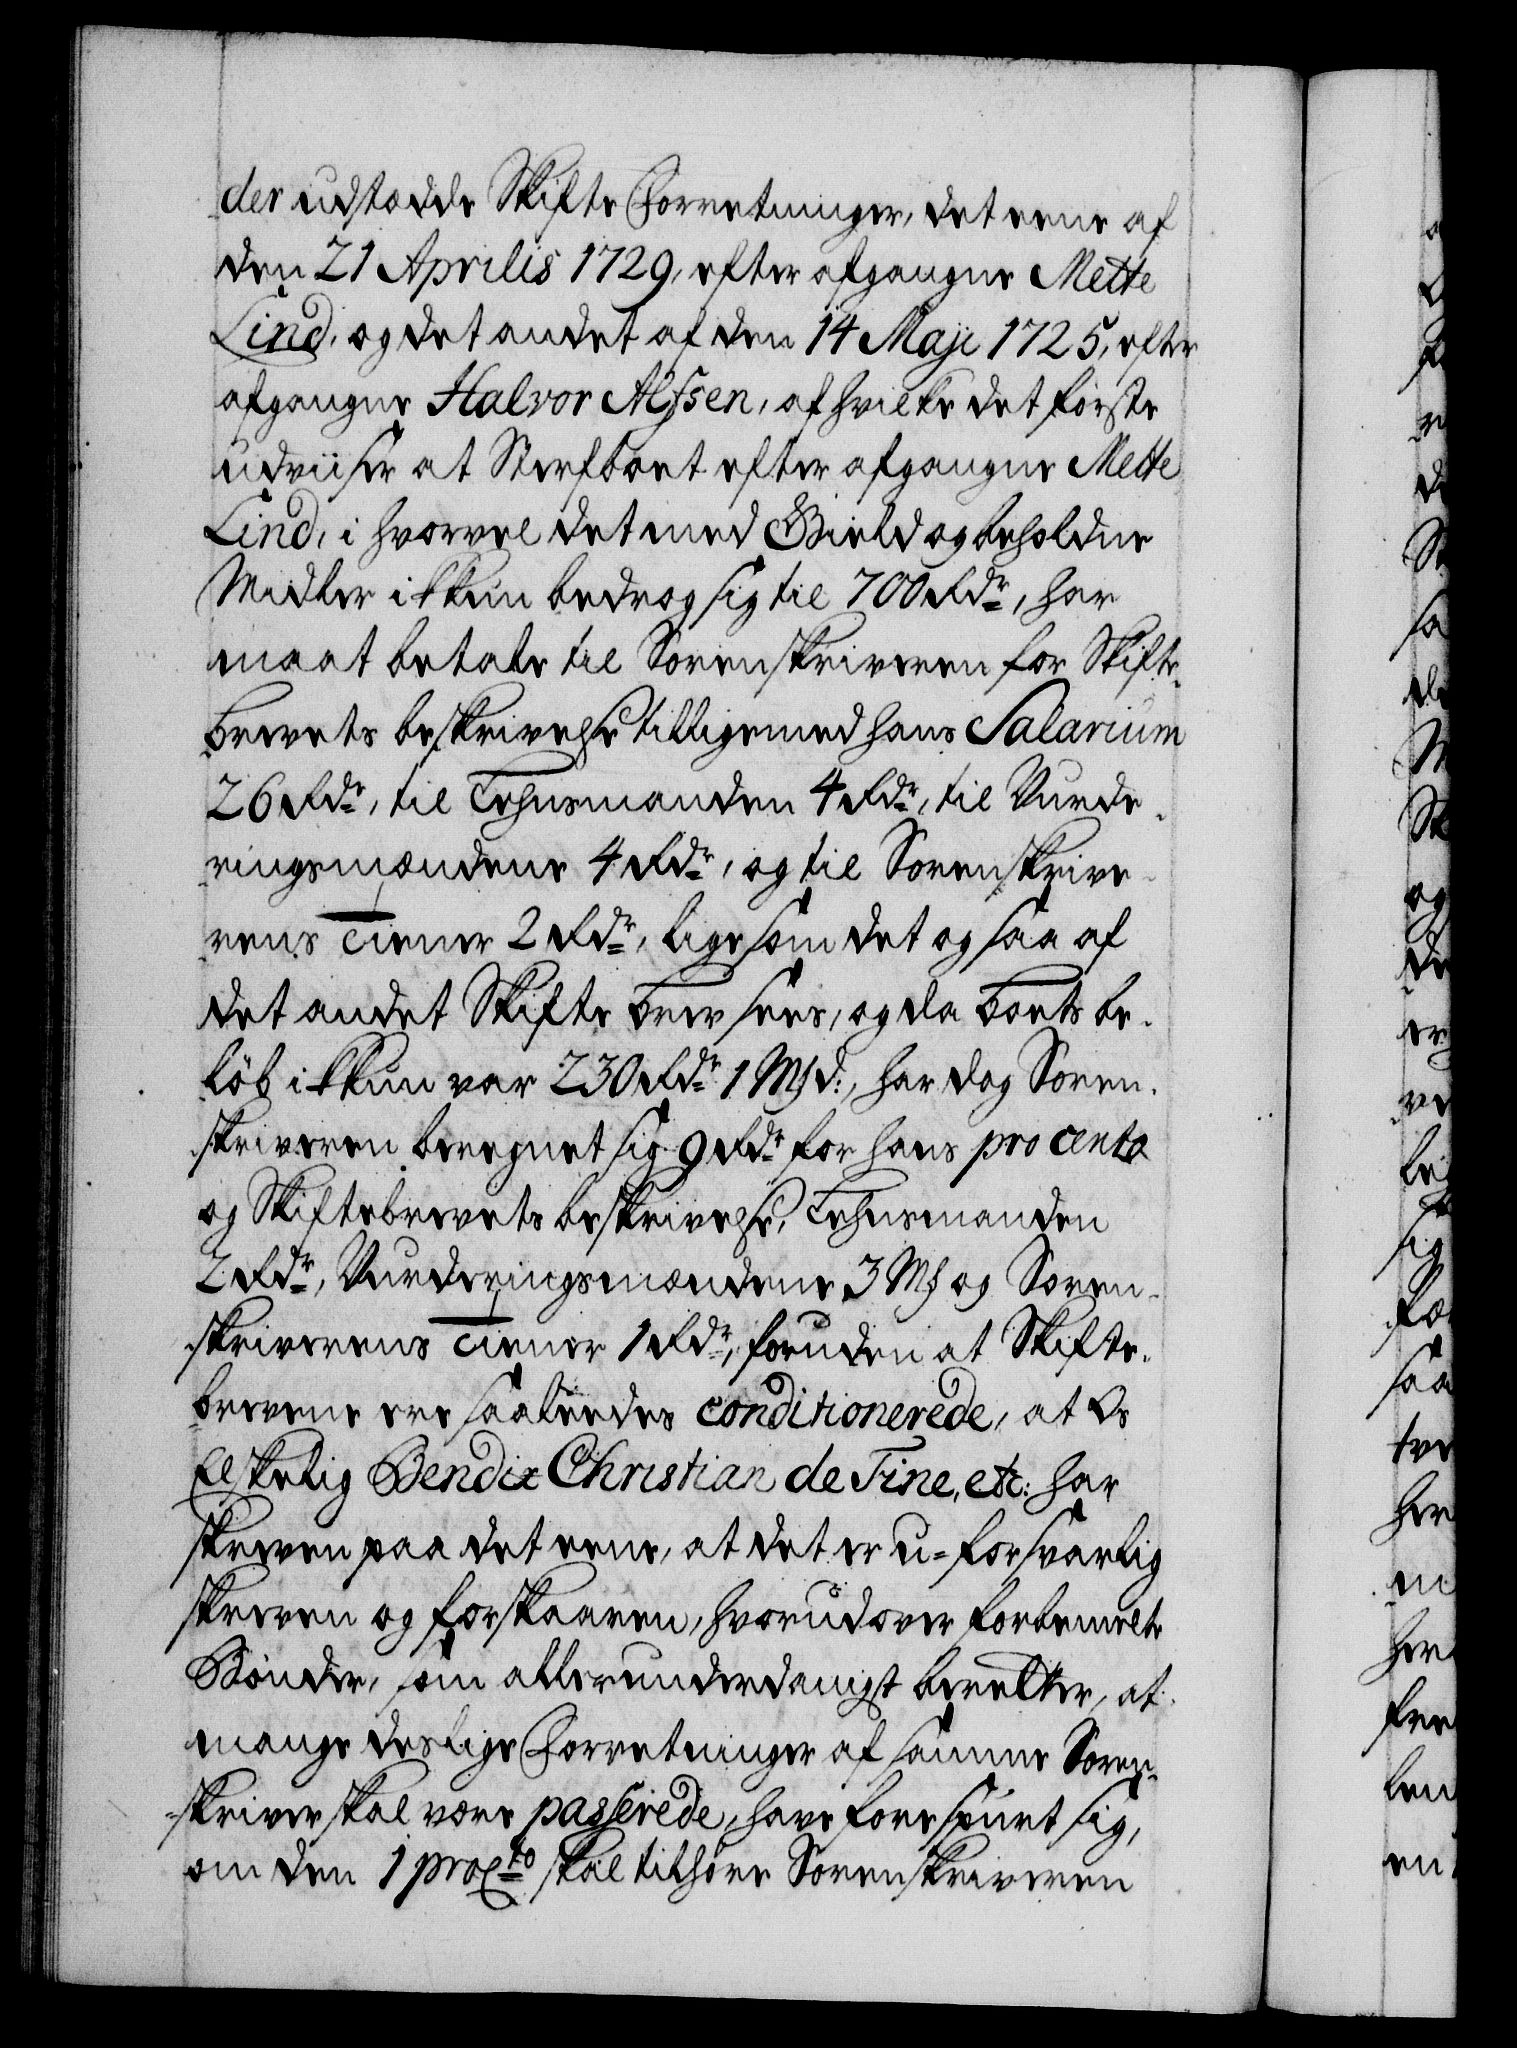 der udstædde Skifte Forretninger, det eene af
den 21 Aprilis 1729, efter afgangne Mette
Lind, og det andet af den 14 Maji 1725, efter
afgangne Halvor Alfsen, af hvilke det første
udviiser at Sterfboet efter afgangne Mette
Lind, i hvorvel det med Gield og beholdne
Midler ikkun bedrog sig til 700 Rdr, har
maat betale til Sorenskriveren for Skifte-
brevets beskrivelse tilligemed hans Salarium
26 Rdr, til Lehnsmanden 4 Rdr, til Vurde-
ringsmændene 4 Rdr, og til Sorenskrive-
rens Tiener 2 Rdr, ligesom det og saa af
det andet Skifte brev sees, og da boets be-
løb ikkun var 230 Rdr 1 Mk d:, har dog Soren-
skriveren beregnet sig 9 Rdr for hans pro cento
og Skiftebrevets beskrivelse, Lehnsmanden
2 Rdr, Vurderingsmændene 3 Mk og Soren-
skriverens Tiener 1 Rdr, foruden at Skifte-
brevene ere saaleedes conditionerede, at Os
Elskelig Bendix Christian de Fine, etc: har
skreven paa det eene, at det er u-forsvarlig
skreven og forskaaren, hvorudover forbemelte
Bønder, som allerunderdanigst beretter, at
mange deslige Forretninger af samme Soren-
skriver skal være passerede, have forespurt sig,
om den 1 pro Cto skal tilhøre Sorenskriveren